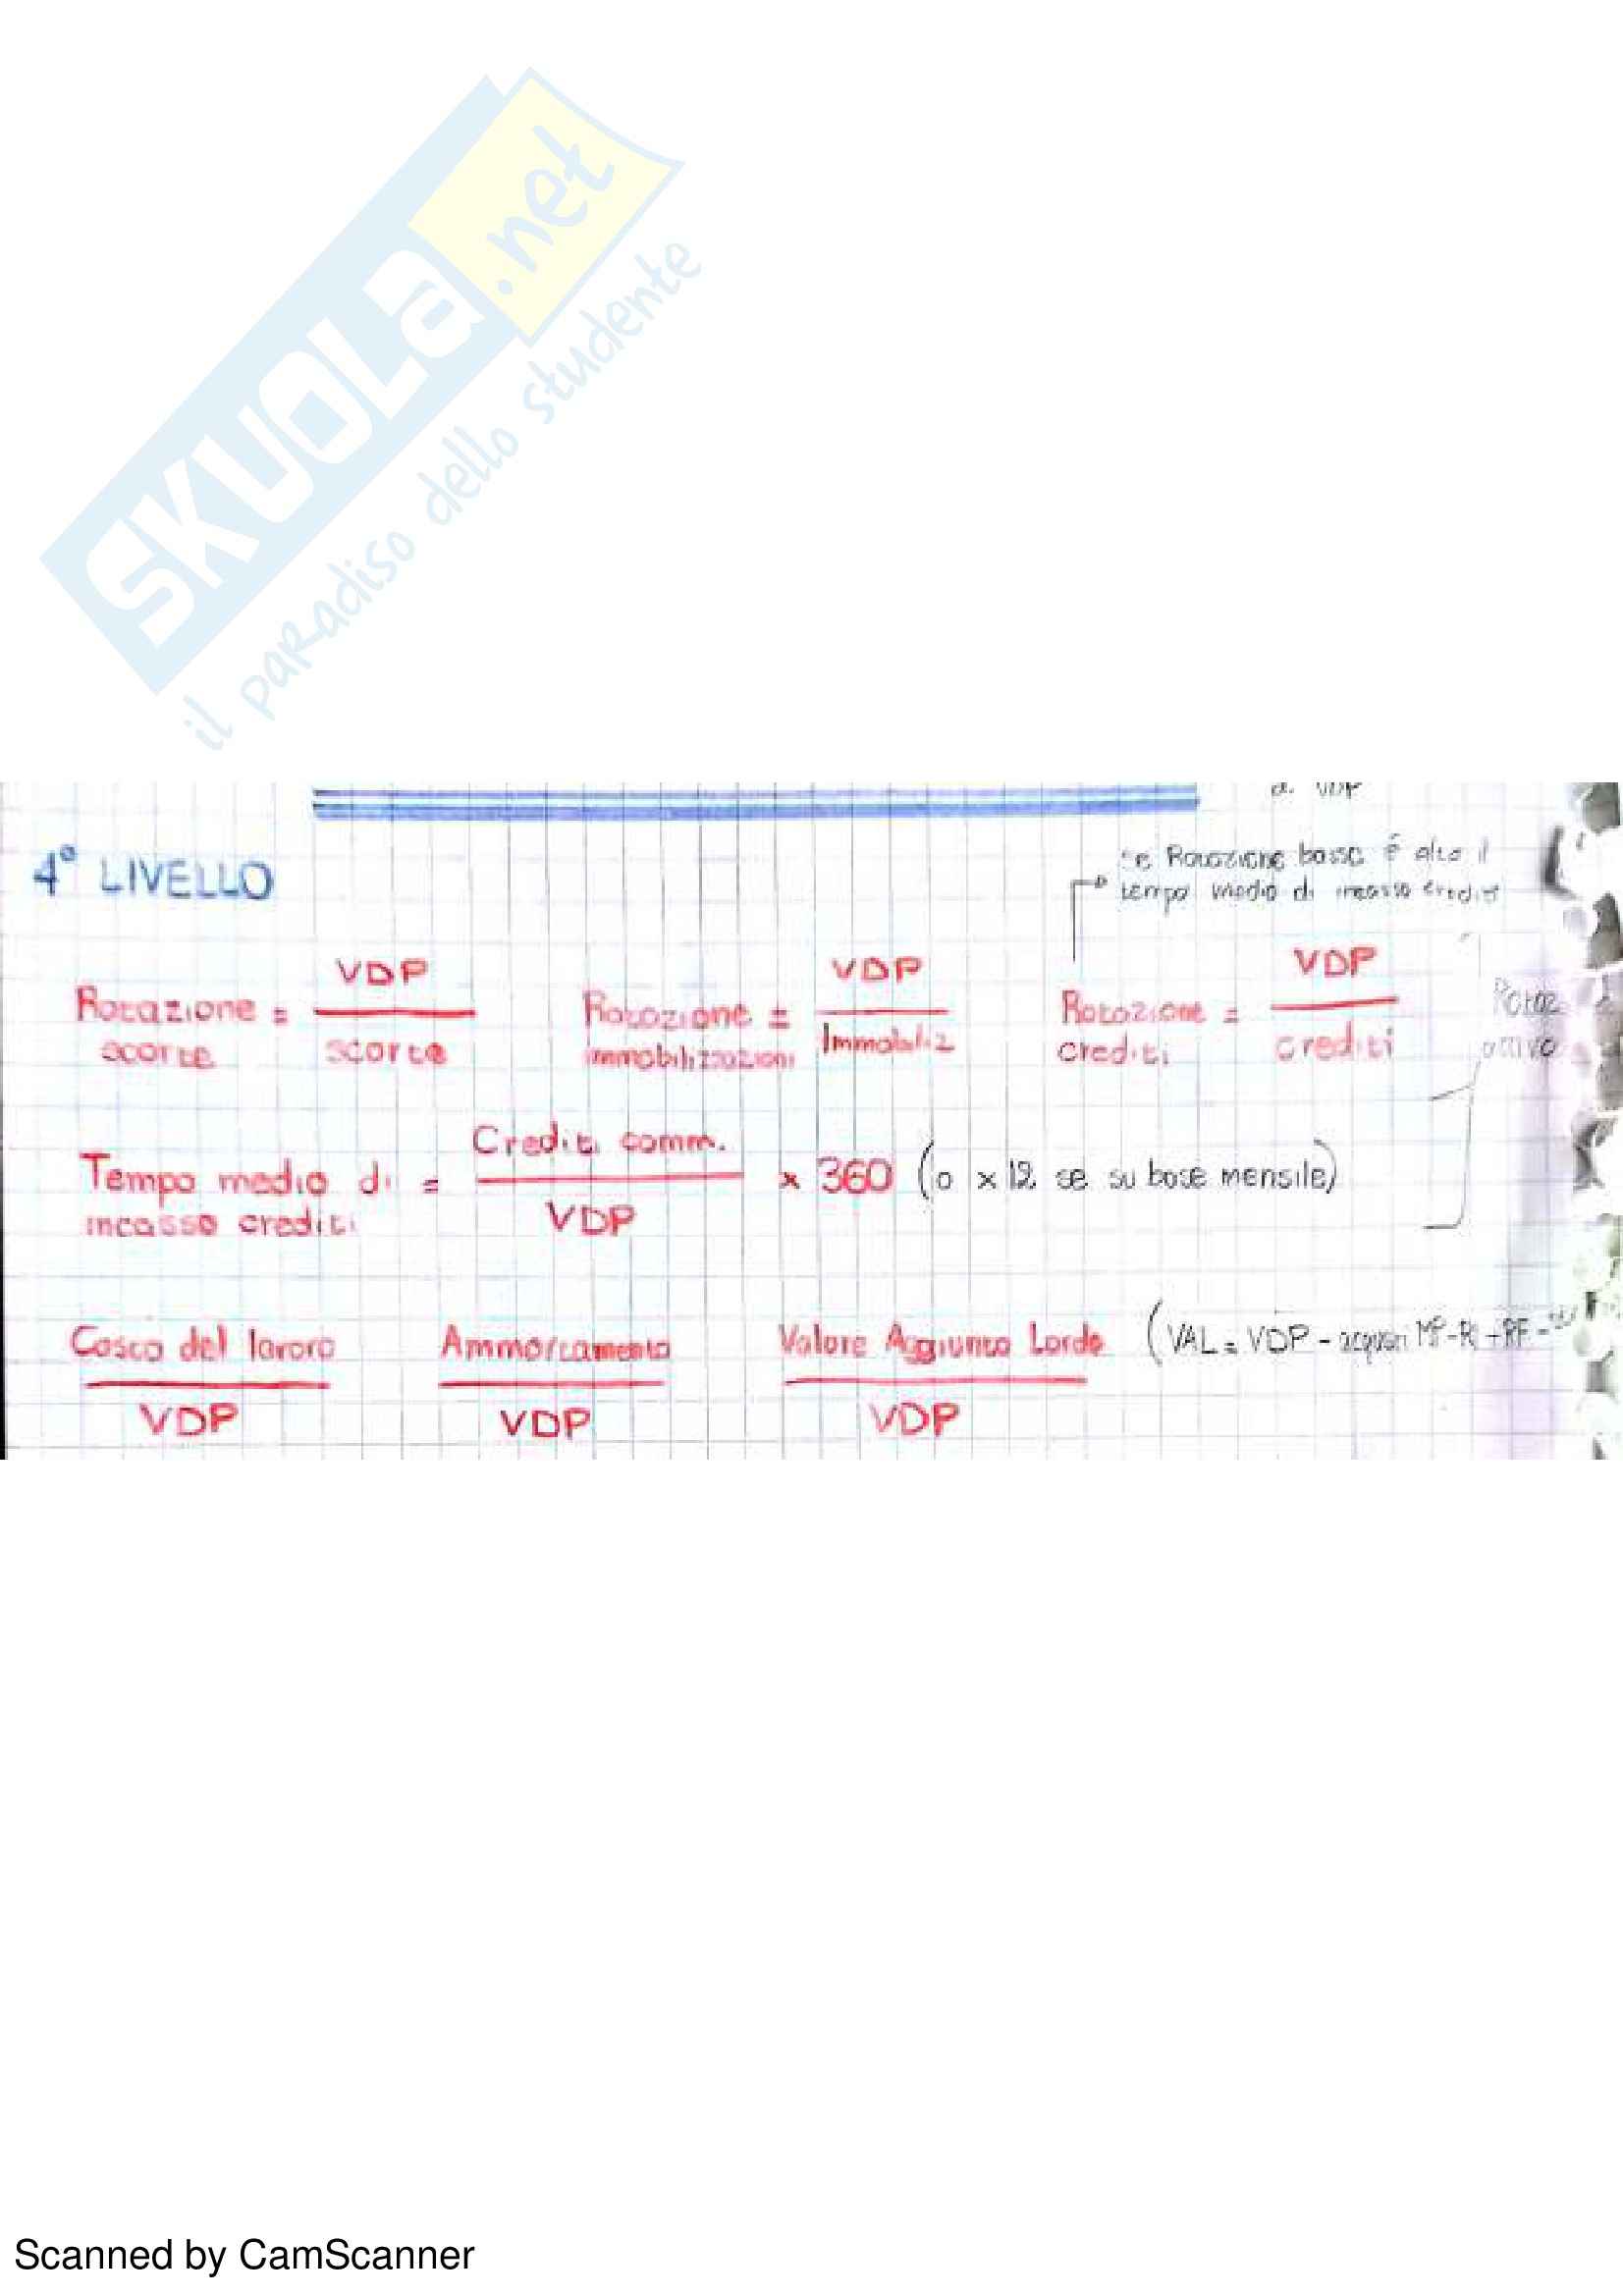 SKUOLA.net
il paradiso dello studente
di VDP
4° LIVELLO
se Rotazione bassa è alto il
tempo medio di incasso crediti
Rotazione scorte = VDP / scorte
Rotazione immobilizzazioni = VDP / Immobiliz
Rotazione crediti = VDP / crediti
Rotaz
attivo
Tempo medio di incasso crediti = Crediti comm. / VDP x 360 (o x 12 se su base mensile)
Costo del lavoro / VDP
Ammortamento / VDP
Valore Aggiunto Lordo / VDP
(VAL = VDP - acquisti MP - RI + RF -
Scanned by CamScanner